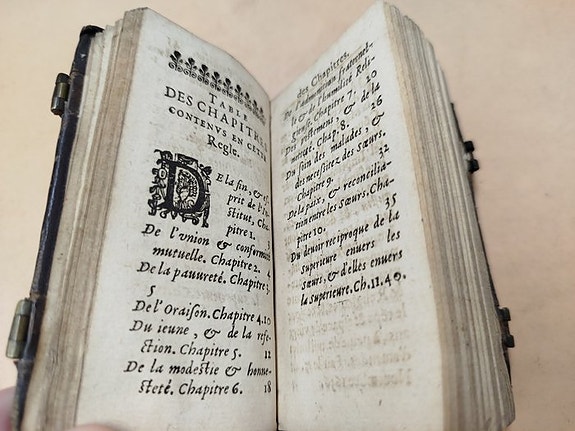 TABLE
DES CHAPITR
CONTENVS EN CETTE
Regle.
DE la fin, & eſ-
prit de l'in-
ſtitut, Cha-
pitre 1. 3
De l'vnion & conformité
mutuelle. Chapitre 2. 4
De la pauureté. Chapitre 3.
5
De l'Oraiſon. Chapitre 4. 10
Du ieune, & de la refe-
ction. Chapitre 5. 12
De la modeſtie & honne-
ſteté. Chapitre 6. 18
des Chapitres.
De l'admonition fraternel-
le & de l'humilité Reli-
gieuſe. Chapitre 7. 20
Des veſtemens, & de la
mutité. Chap. 8. 26
Du ſoin des malades, &
des neceſſitez des Sœurs.
Chapitre 9. 32
De la paix, & reconcilia-
tion entre les Sœurs. Cha-
pitre 10. 35
Du deuoir reciproque de la
Superieure enuers les
Sœurs, & d'elles enuers
la Superieure, Ch. 11. 40.